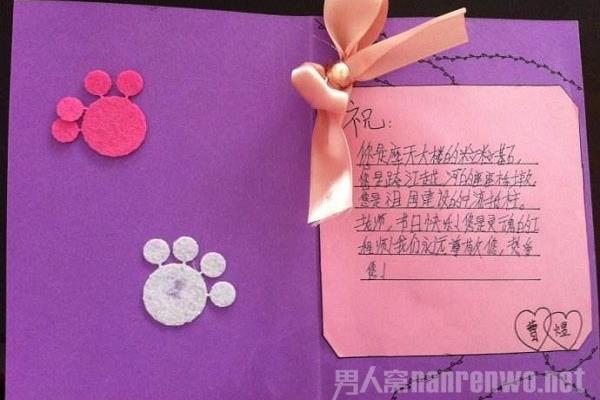 祝:
您是座天大楼的粒粒基石,
您是跨江越河的座座桥墩,
您是祖国建设的中流抵柱。
老师,节日快乐!您是灵魂的工
程师!我们永远尊敬您,热爱
您!
曹 煜
男人窝nanrenwo.net